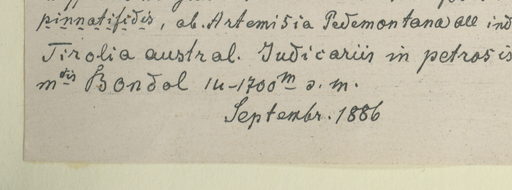 pinnatifidis, ab. Artemisia Pedemontana all ind
Tirolia austral. Judicariis in petrosis
m^tis Bondol 14-1700^m s. m.
Septembr. 1886